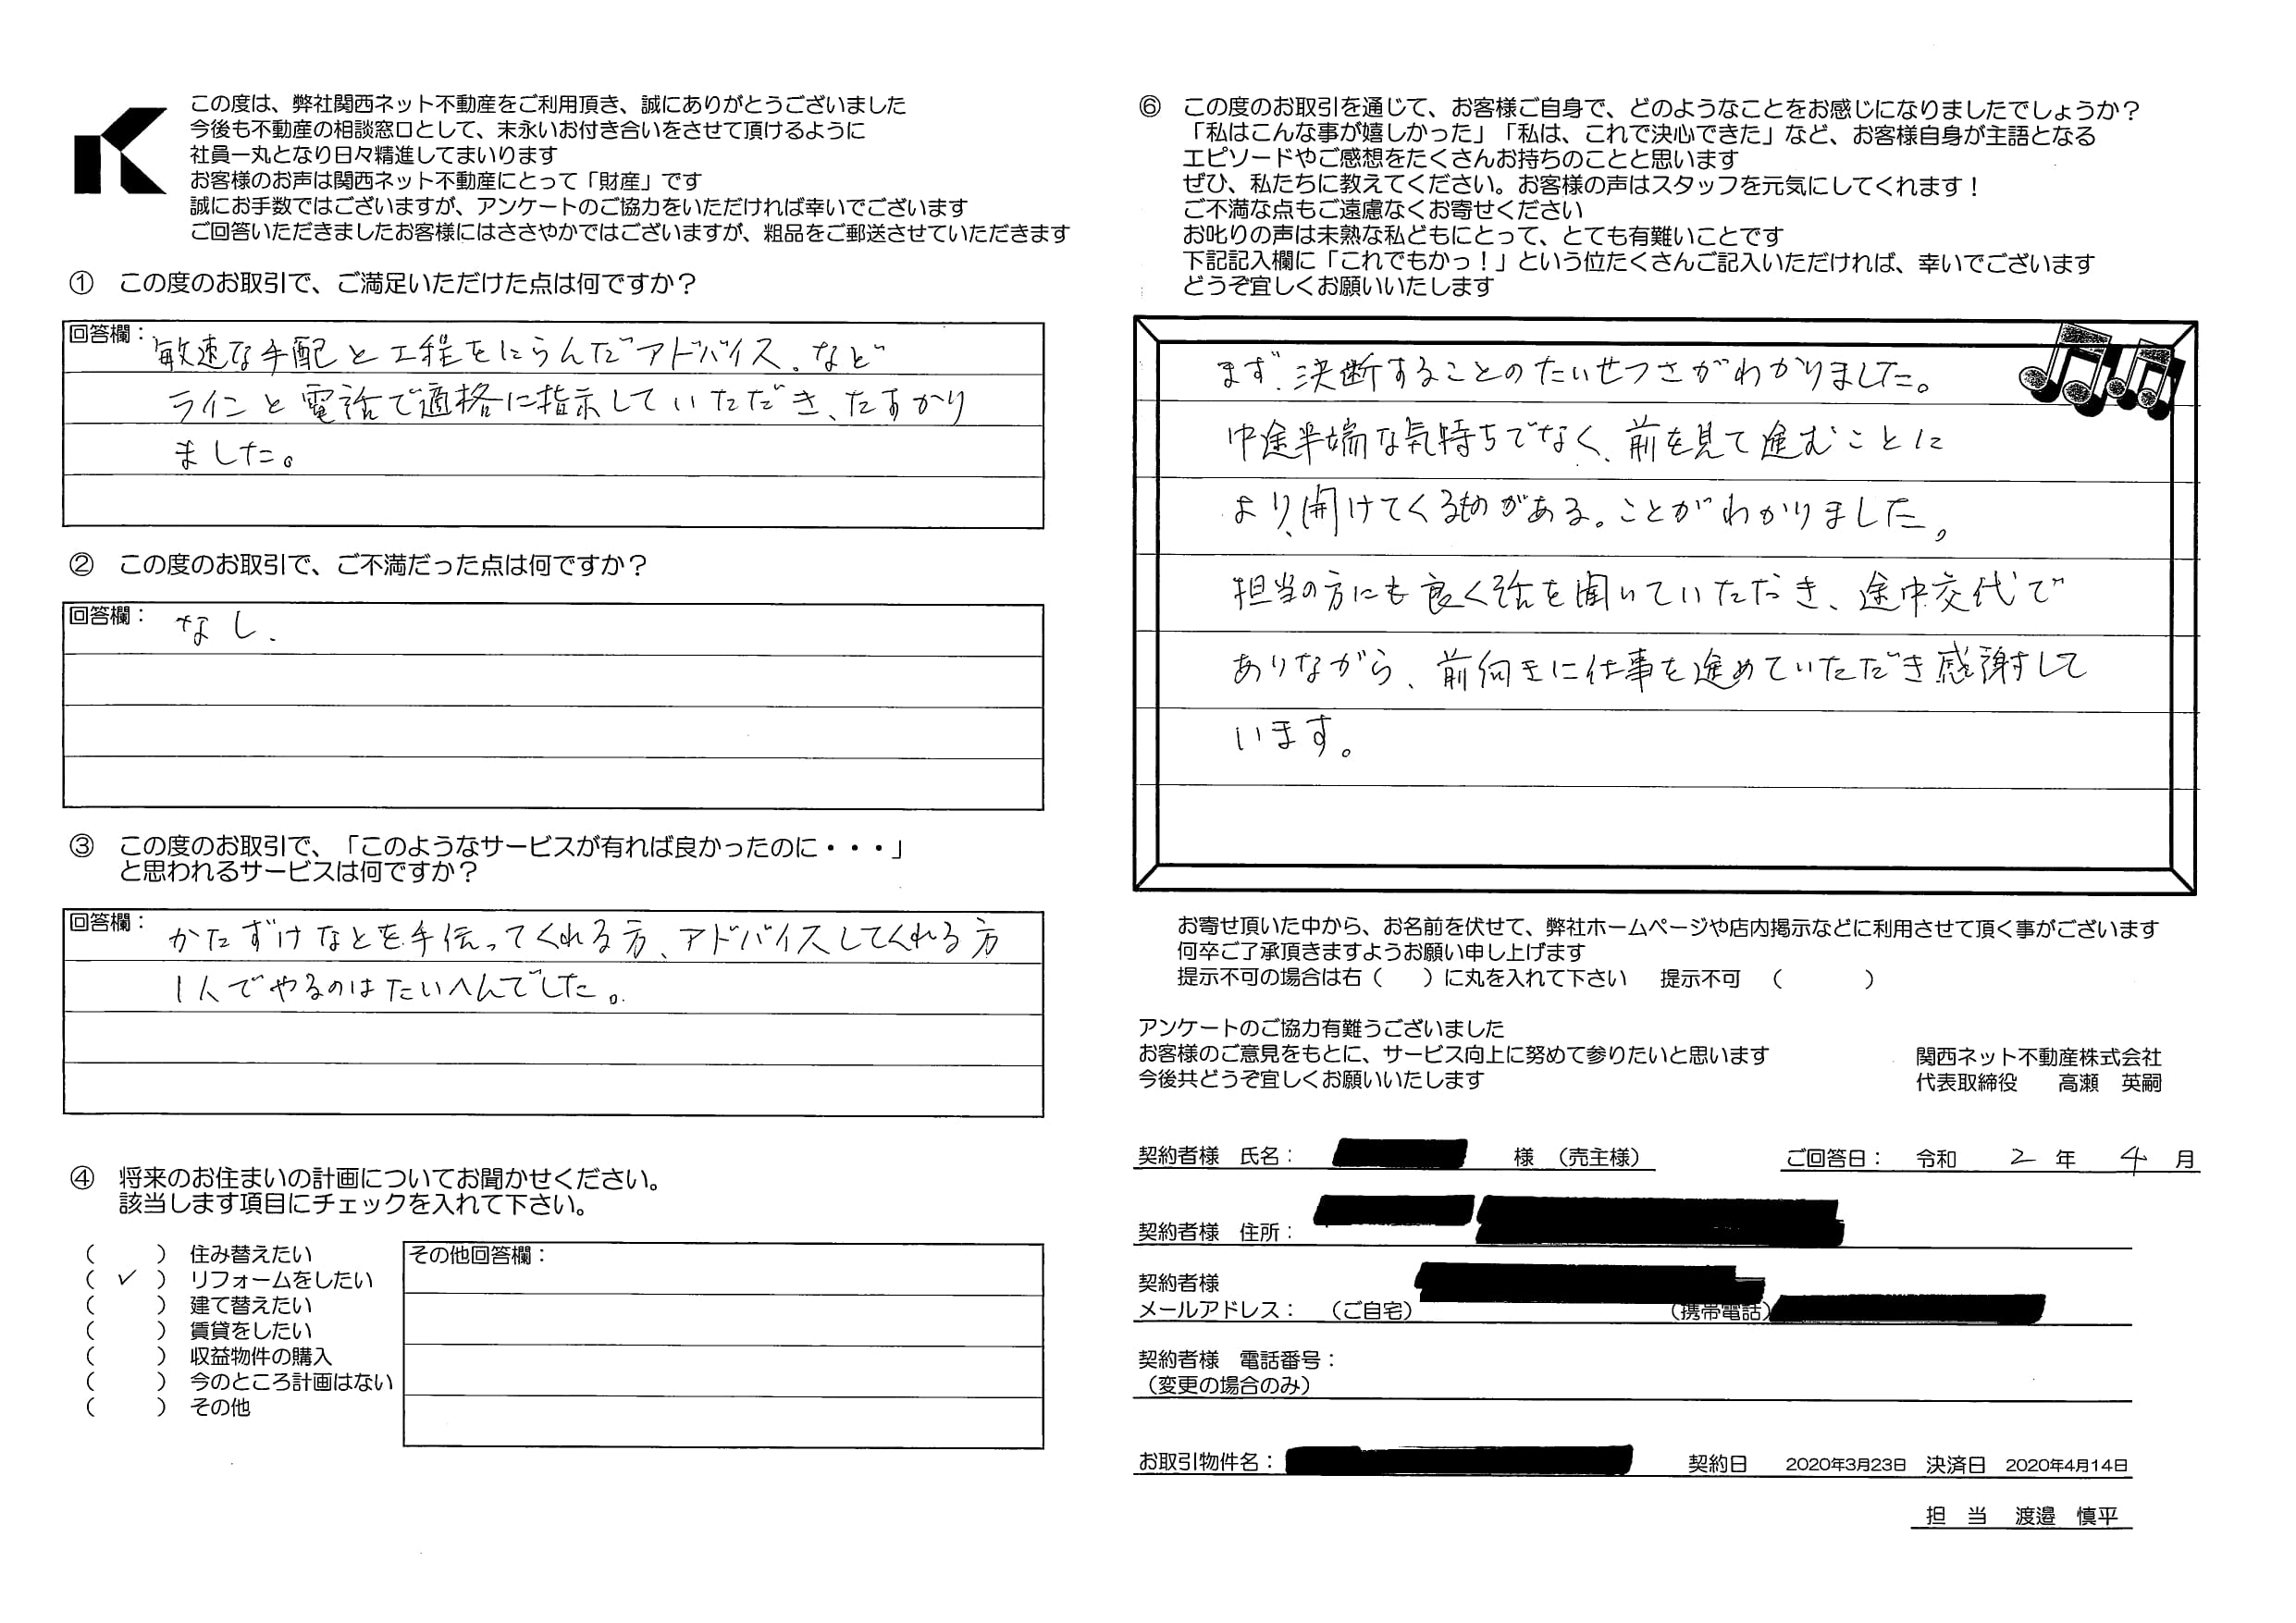 この度は、弊社関西ネット不動産をご利用頂き、誠にありがとうございました
今後も不動産の相談窓口として、末永いお付き合いをさせて頂けるように
社員一丸となり日々精進してまいります
お客様のお声は関西ネット不動産にとって「財産」です
誠にお手数ではございますが、アンケートのご協力をいただければ幸いでございます
ご回答いただきましたお客様にはささやかではございますが、粗品をご郵送させていただきます
① この度のお取引で、ご満足いただけた点は何ですか？
回答欄：敏速な手配と工程をにらんだアドバイス。など
ラインと電話で適格に指示していただき、たすかり
ました。
② この度のお取引で、ご不満だった点は何ですか？
回答欄：なし.
③ この度のお取引で、「このようなサービスが有れば良かったのに・・・」
と思われるサービスは何ですか？
回答欄：かたずけなどを手伝ってくれる方、アドバイスしてくれる方
1人でやるのはたいへんでした。
④ 将来のお住まいの計画についてお聞かせください。
該当します項目にチェックを入れて下さい。
（　　）住み替えたい
（ ✓ ）リフォームをしたい
（　　）建て替えたい
（　　）賃貸をしたい
（　　）収益物件の購入
（　　）今のところ計画はない
（　　）その他
その他回答欄：
⑥ この度のお取引を通じて、お客様ご自身で、どのようなことをお感じになりましたでしょうか？
「私はこんな事が嬉しかった」「私は、これで決心できた」など、お客様自身が主語となる
エピソードやご感想をたくさんお持ちのことと思います
ぜひ、私たちに教えてください。お客様の声はスタッフを元気にしてくれます！
ご不満な点もご遠慮なくお寄せください
お叱りの声は未熟な私どもにとって、とても有難いことです
下記記入欄に「これでもかっ！」という位たくさんご記入いただければ、幸いでございます
どうぞ宜しくお願いいたします
まず、決断することのたいせつさがわかりました。
中途半端な気持ちでなく、前を見て進むことに
より、開けてくるものがある。ことがわかりました。
担当の方にも良く話を聞いていただき、途中交代で
ありながら、前向きに仕事を進めていただき感謝して
います。
お寄せ頂いた中から、お名前を伏せて、弊社ホームページや店内掲示などに利用させて頂く事がございます
何卒ご了承頂きますようお願い申し上げます
提示不可の場合は右（　　）に丸を入れて下さい　提示不可　（　　　　）
アンケートのご協力有難うございました
お客様のご意見をもとに、サービス向上に努めて参りたいと思います
今後共どうぞ宜しくお願いいたします
関西ネット不動産株式会社
代表取締役　高瀬　英嗣
契約者様　氏名：　様　（売主様）　ご回答日：　令和　2　年　4　月
契約者様　住所：
契約者様
メールアドレス：　（ご自宅）　（携帯電話）
契約者様　電話番号：
（変更の場合のみ）
お取引物件名：　契約日　2020年3月23日　決済日　2020年4月14日
担　当　渡邉　慎平